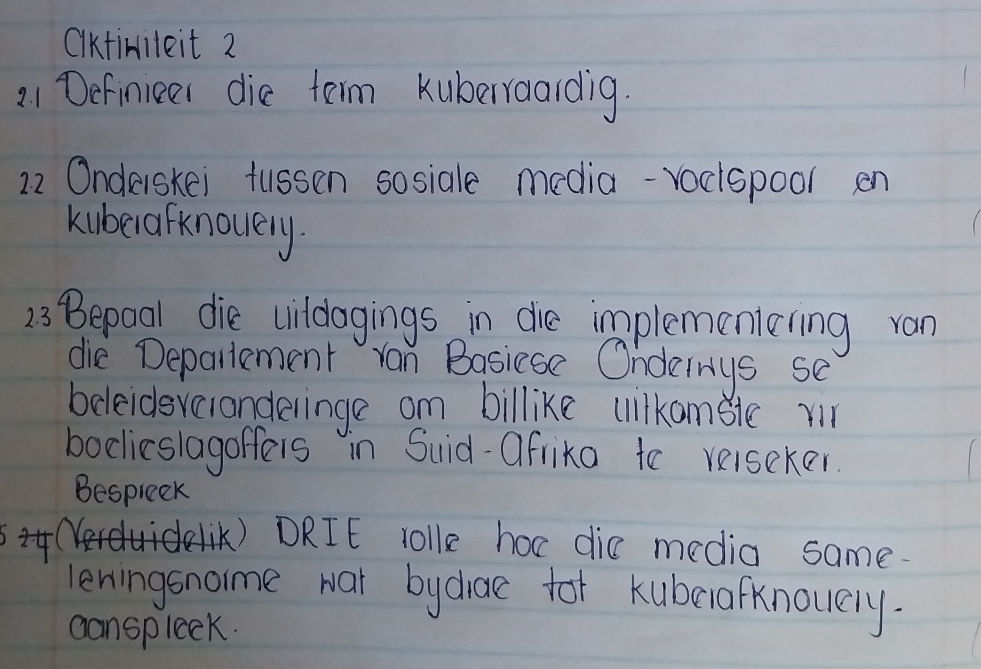 Aktiwiteit 2
2.1 Definieer die term kubervaardig.
2.2 Onderskei tussen sosiale media - voetspoor en
kuberafknouery.
2.3 Bepaal die uitdagings in die implementering van
die Departement van Basiese Onderwys se
beleidsveranderinge om billike uitkomste vir
boelieslagoffers in Suid-Afrika te verseker.
Bespreek
5 2.4 (Verduidelik) DRIE rolle hoe die media same-
lewingsnorme wat bydrae tot kuberafknouery.
aanspreek.